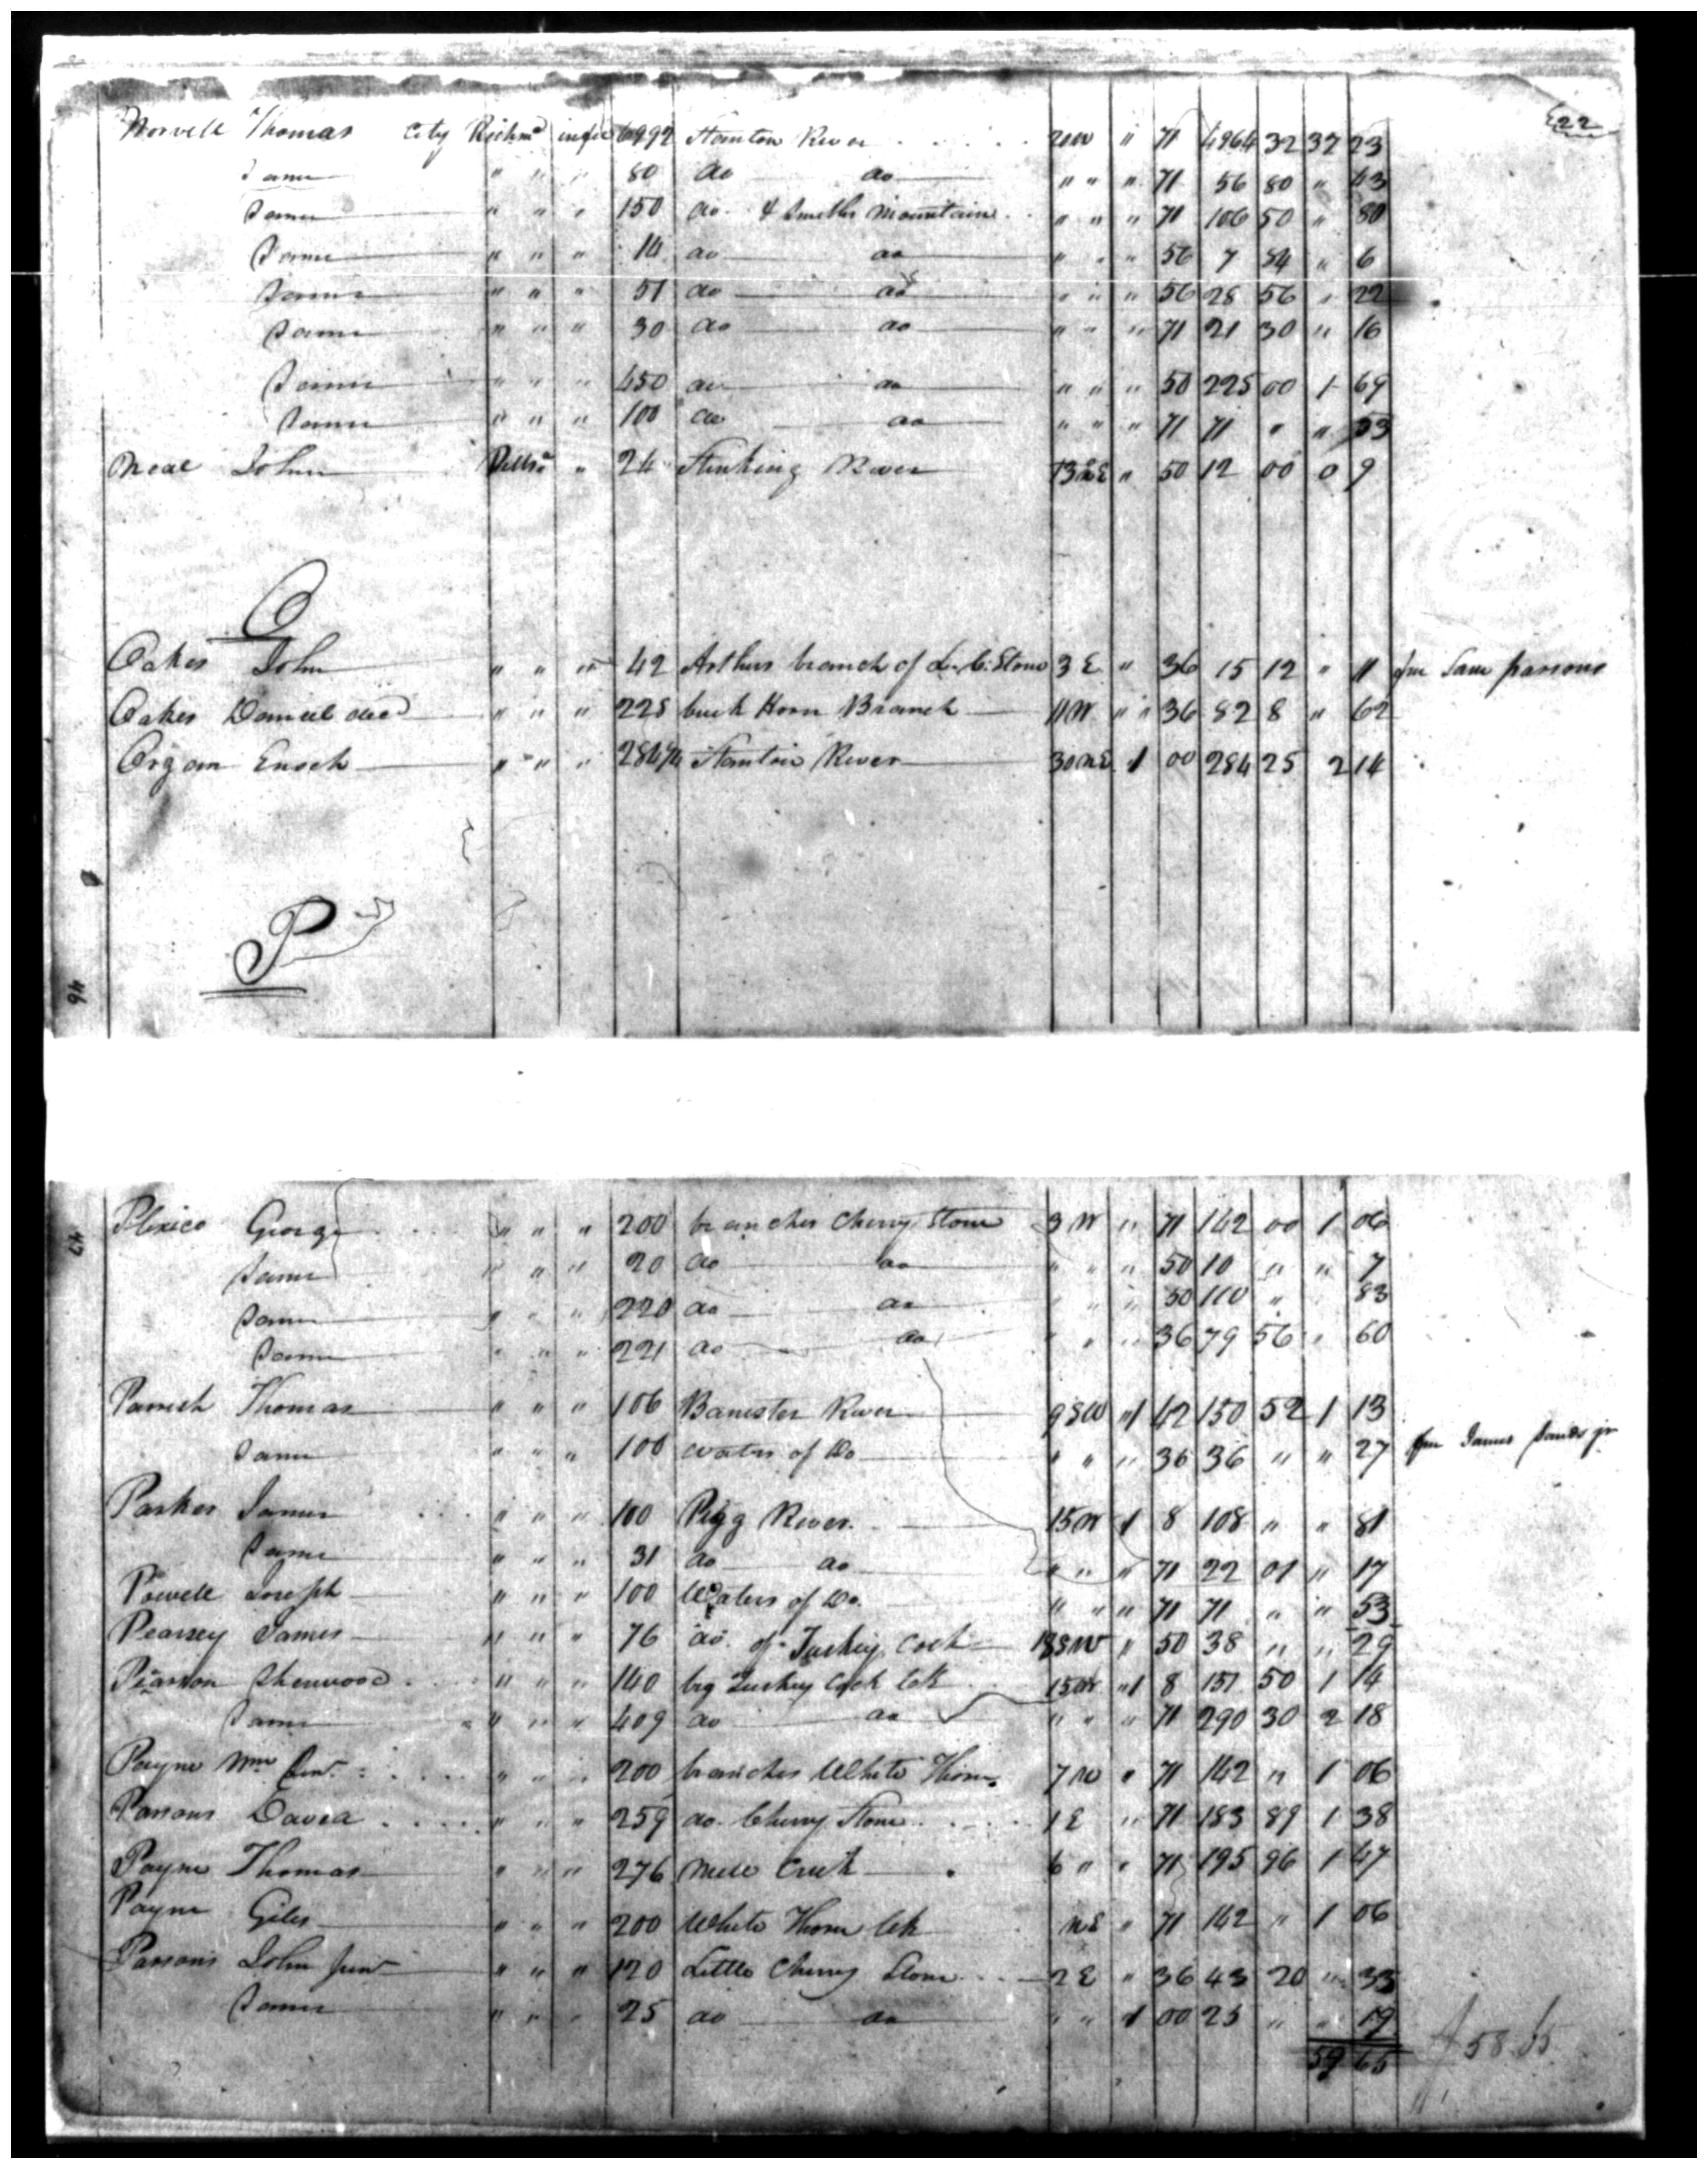 22
Norvell Thomas City Richmd in fee 6992 Stanton River 20 W " 71 4964 32 37 23
Same " " " 80 do do " " " 71 56 80 " 43
Same " " " 150 do & Smiths Mountain " " " 71 106 50 " 80
Same " " " 14 do do " " " 56 7 84 " 6
Same " " " 51 do do " " " 56 28 56 " 22
Same " " " 30 do do " " " 71 21 30 " 16
Same " " " 450 do do " " " 50 225 00 1 69
Same " " " 100 do do " " " 71 71 " " 53
Neal John Pittsa " 24 Stinking River 13 NE " 50 12 00 0 9
O
Oakes John " " " 42 Arthurs branch of L. C. Stone 3 E " 36 15 12 " 11 fm Saml parsons
Oakes Daniel decd " " " 228 buck Horn Branch 11 W " " 36 82 8 " 62
Organ Enoch " " " 284 1/4 Stanton River 30 NE 1 00 284 25 2 14
P
46
47
Plexico George " " " 200 branches Cherry Stone 3 N " 71 142 00 1 06
Same " " " 20 do do " " " 50 10 " " 7
Same " " " 220 do do " " " 50 110 " 83
Same " " " 221 do do " " " 36 79 56 " 60
Parrish Thomas " " " 106 Banester River 9 SW " 1 42 150 52 1 13
Same " " " 100 waters of Do " " " 36 36 " " 27 fm James Sands jr
Parker James " " " 100 Pigg River 15 N 1 8 108 " " 81
Same " " " 31 do do " " " 71 22 01 " 17
Powell Joseph " " " 100 Waters of Do. " " " 71 71 " " 53
Pearsey James " " " 76 do. of Turkey Cock 18 SW " 50 38 " " 29
Pearson Sherwood " " " 140 big Turkey Cock Ck 15 W " 1 8 151 50 1 14
Same " " " 409 do do " " " 71 290 30 2 18
Payne Wm Senr " " " 200 branches White Thorn 7 N " 71 142 " 1 06
Parsons David " " " 259 do. Cherry Stone 1 E " 71 183 89 1 38
Payne Thomas " " " 276 Mill Creek 6 " " 71 195 96 1 47
Payne Giles " " " 200 White Thorn Ck NE " 71 142 " 1 06
Parsons John Junr " " " 120 Little Cherry Stone 2 E " 36 43 20 " 33
Same " " " 25 do do " " 1 00 25 " " 19
59 65
58.65